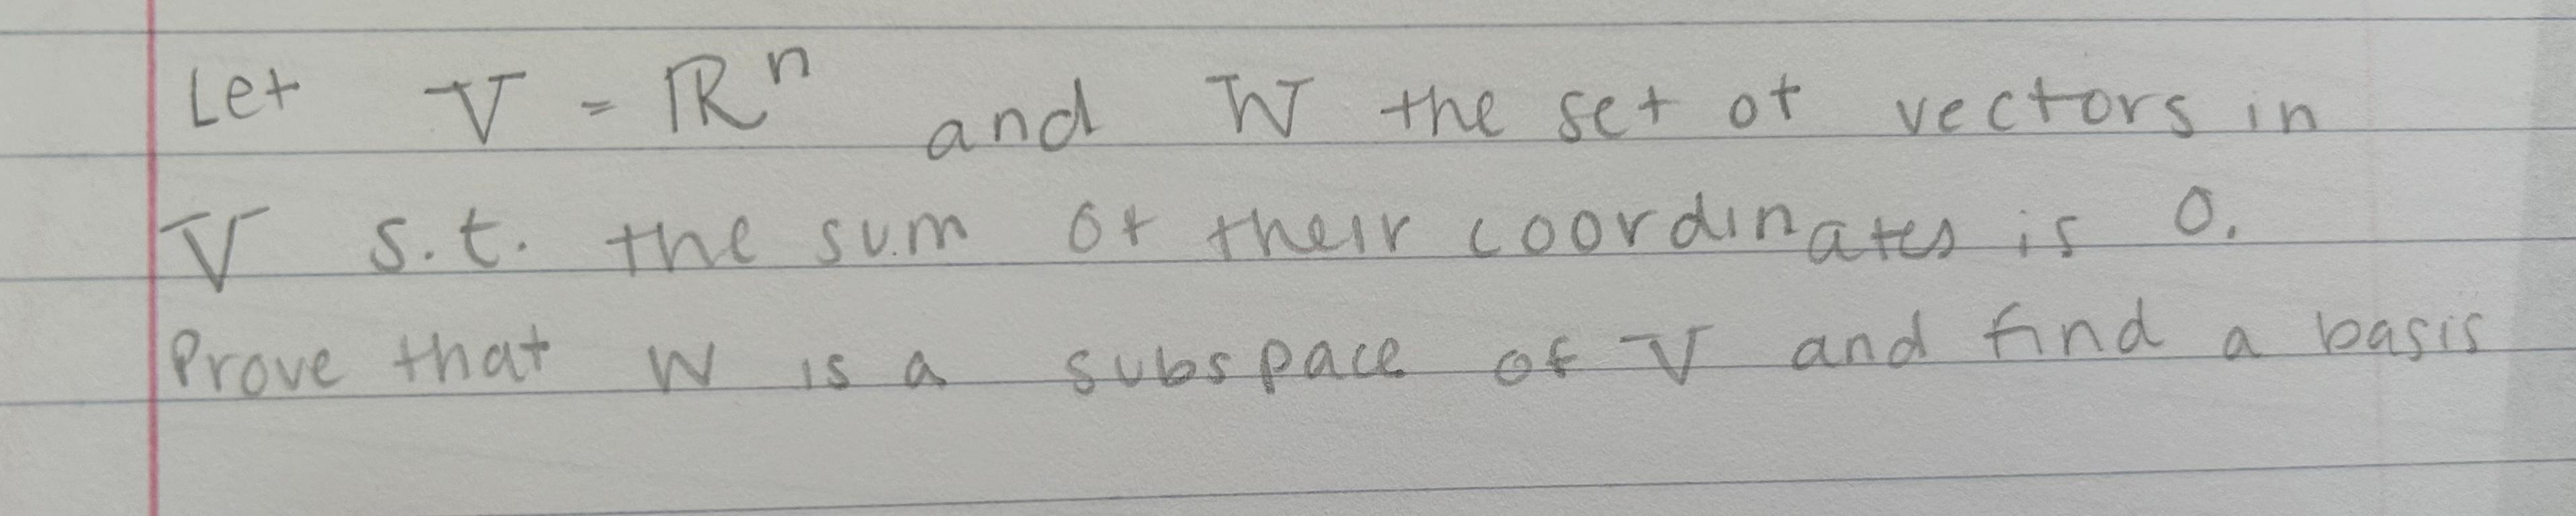 Let V = ℝⁿ and W the set of vectors in
V s.t. the sum of their coordinates is 0.
Prove that W is a subspace of V and find a basis